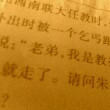 西南联大任教时
外出时被一个乞丐跟
说:“老弟,我是教
就走了。请问朱